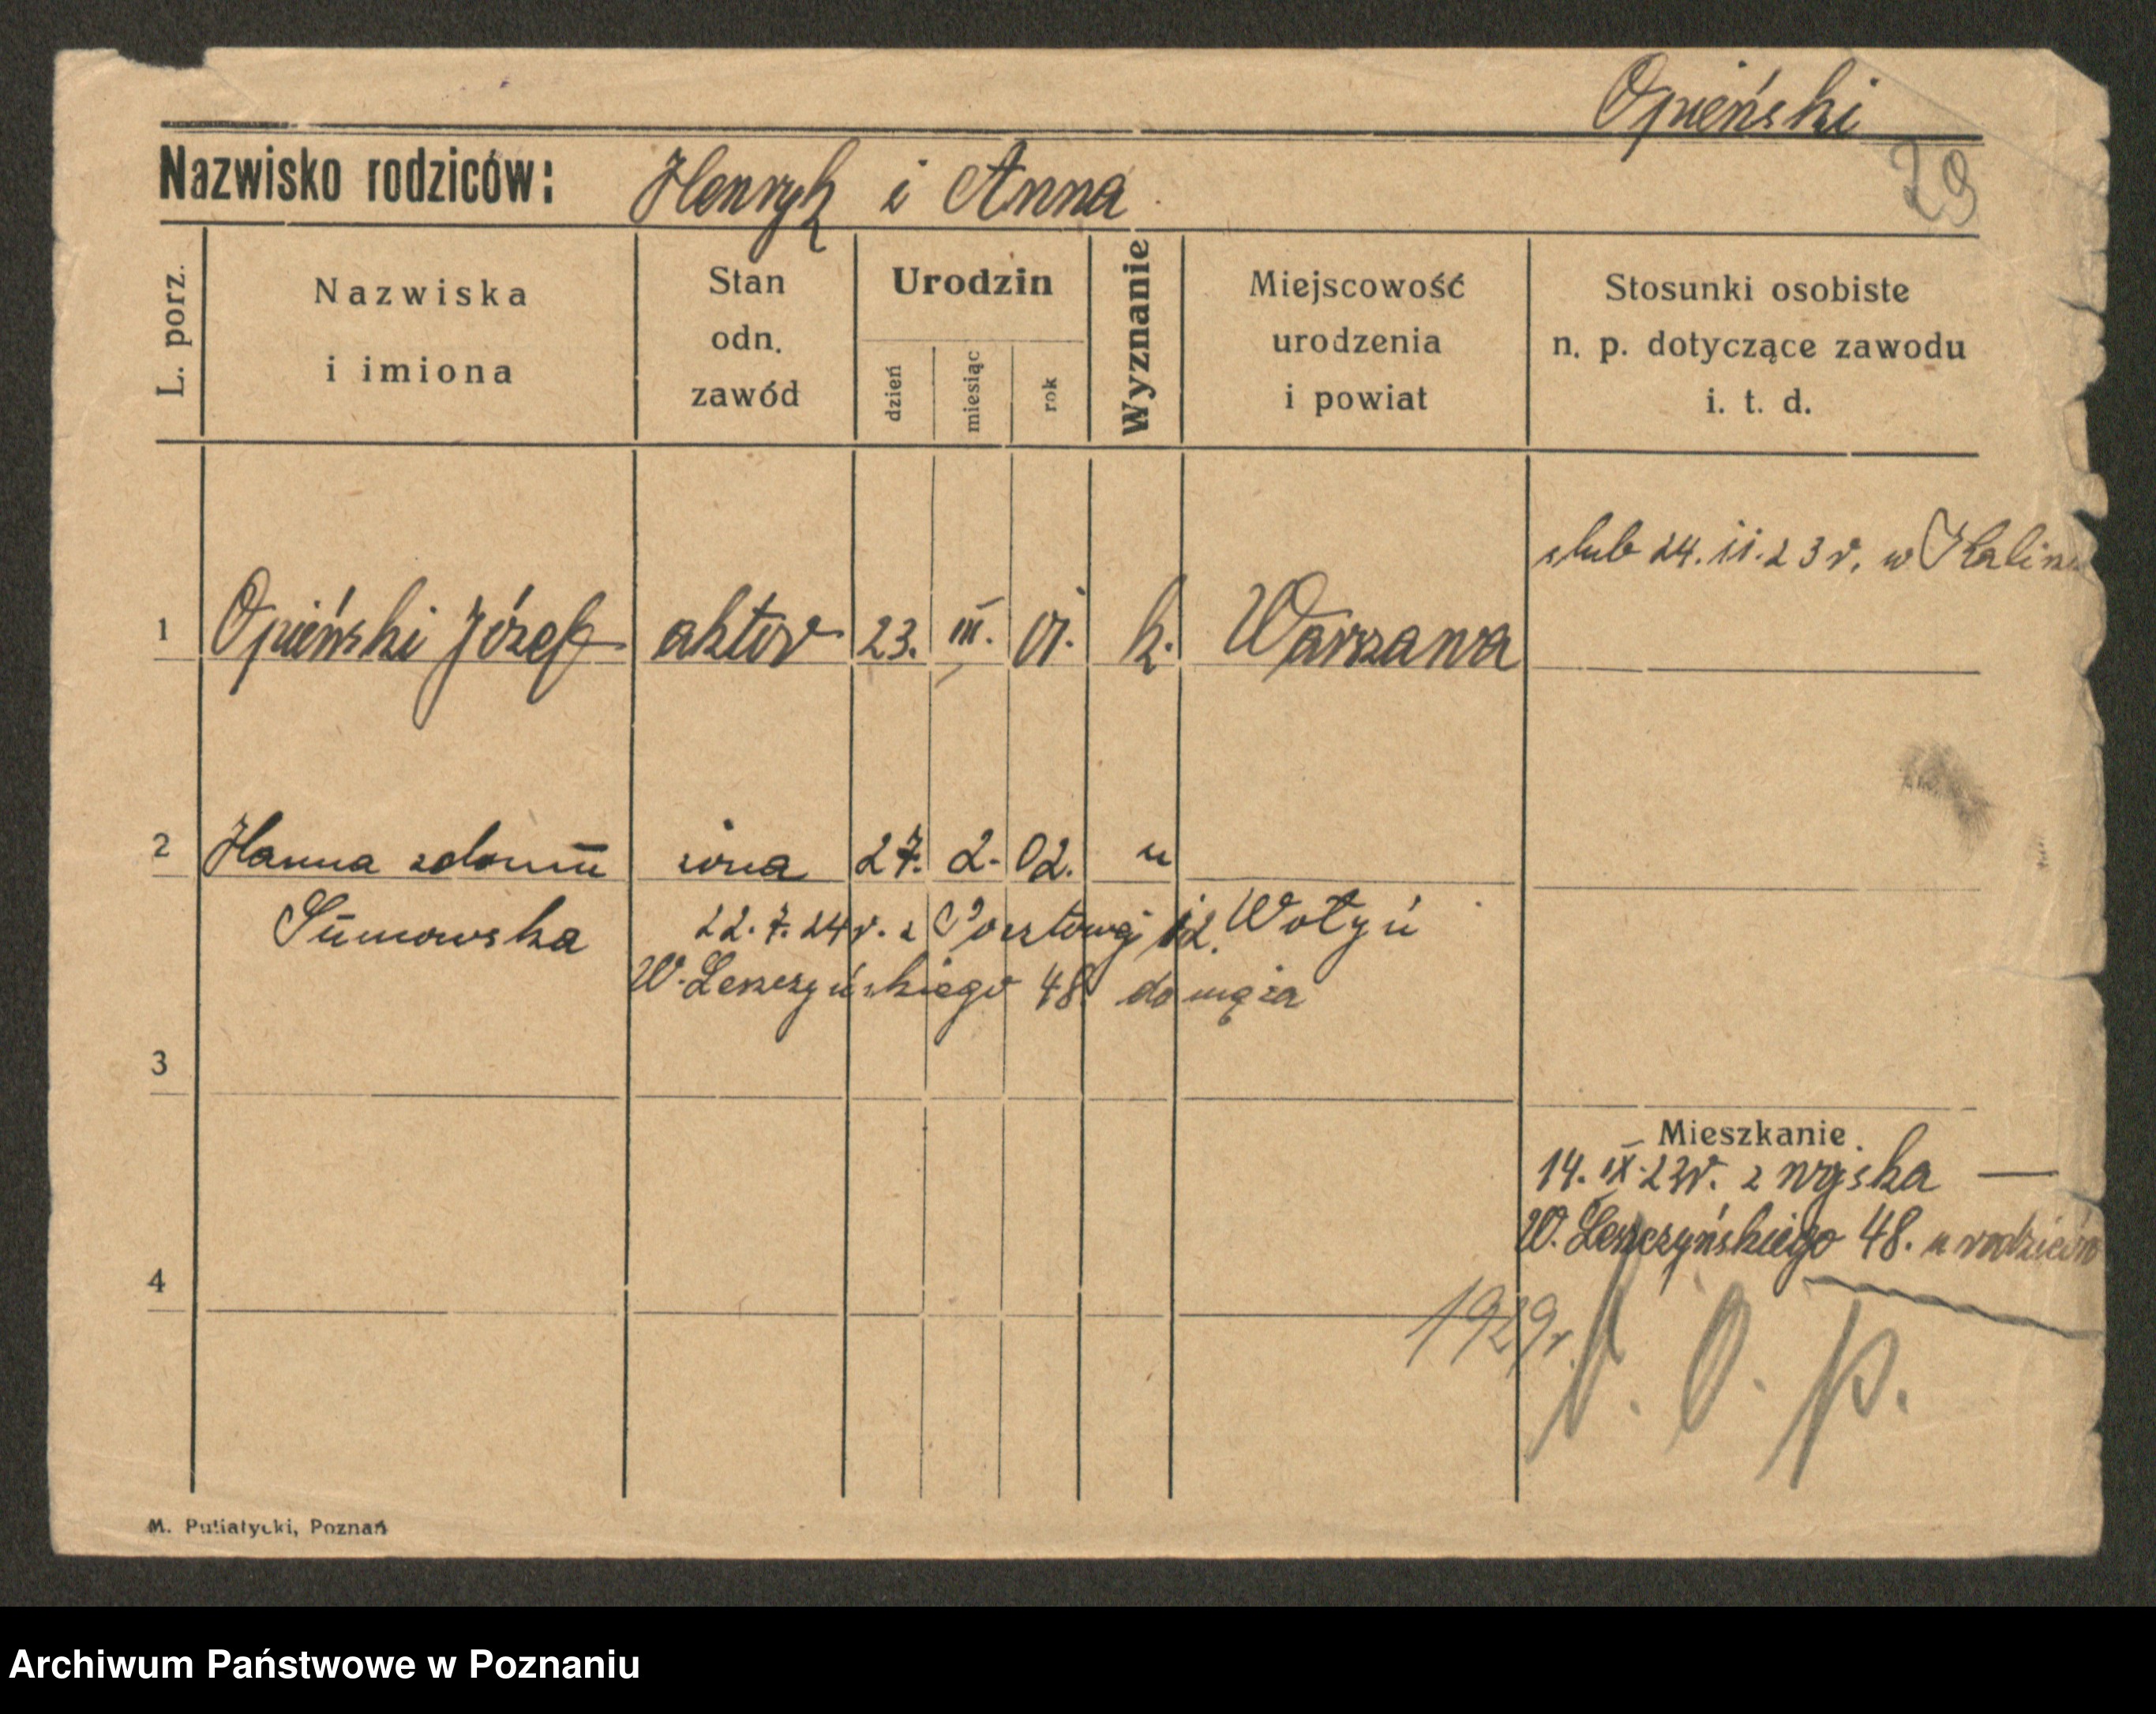 Opieński
Nazwisko rodziców: Henryk i Anna
29
L. porz.
Nazwiska
i imiona
Stan
odn.
zawód
Urodzin
dzień
miesiąc
rok
Wyznanie
Miejscowość
urodzenia
i powiat
Stosunki osobiste
n. p. dotyczące zawodu
i. t. d.
ślub 24. ii. 23 r. w
1 Opieński Józef aktor 23. III. 01. k. Warszawa
2 Hanna zdomu żona 27. 2. 02. "
Sumowska
22. 7. 24 r. z Pocztowej 12. Wołyń
W. Leszczyńskiego 48. do męża
3
Mieszkanie
14. IX. 23 r. z wojska —
W. Leszczyńskiego 48. u rodziców
4
1929 r. A. O. p.
M. Putiatycki, Poznań
Archiwum Państwowe w Poznaniu